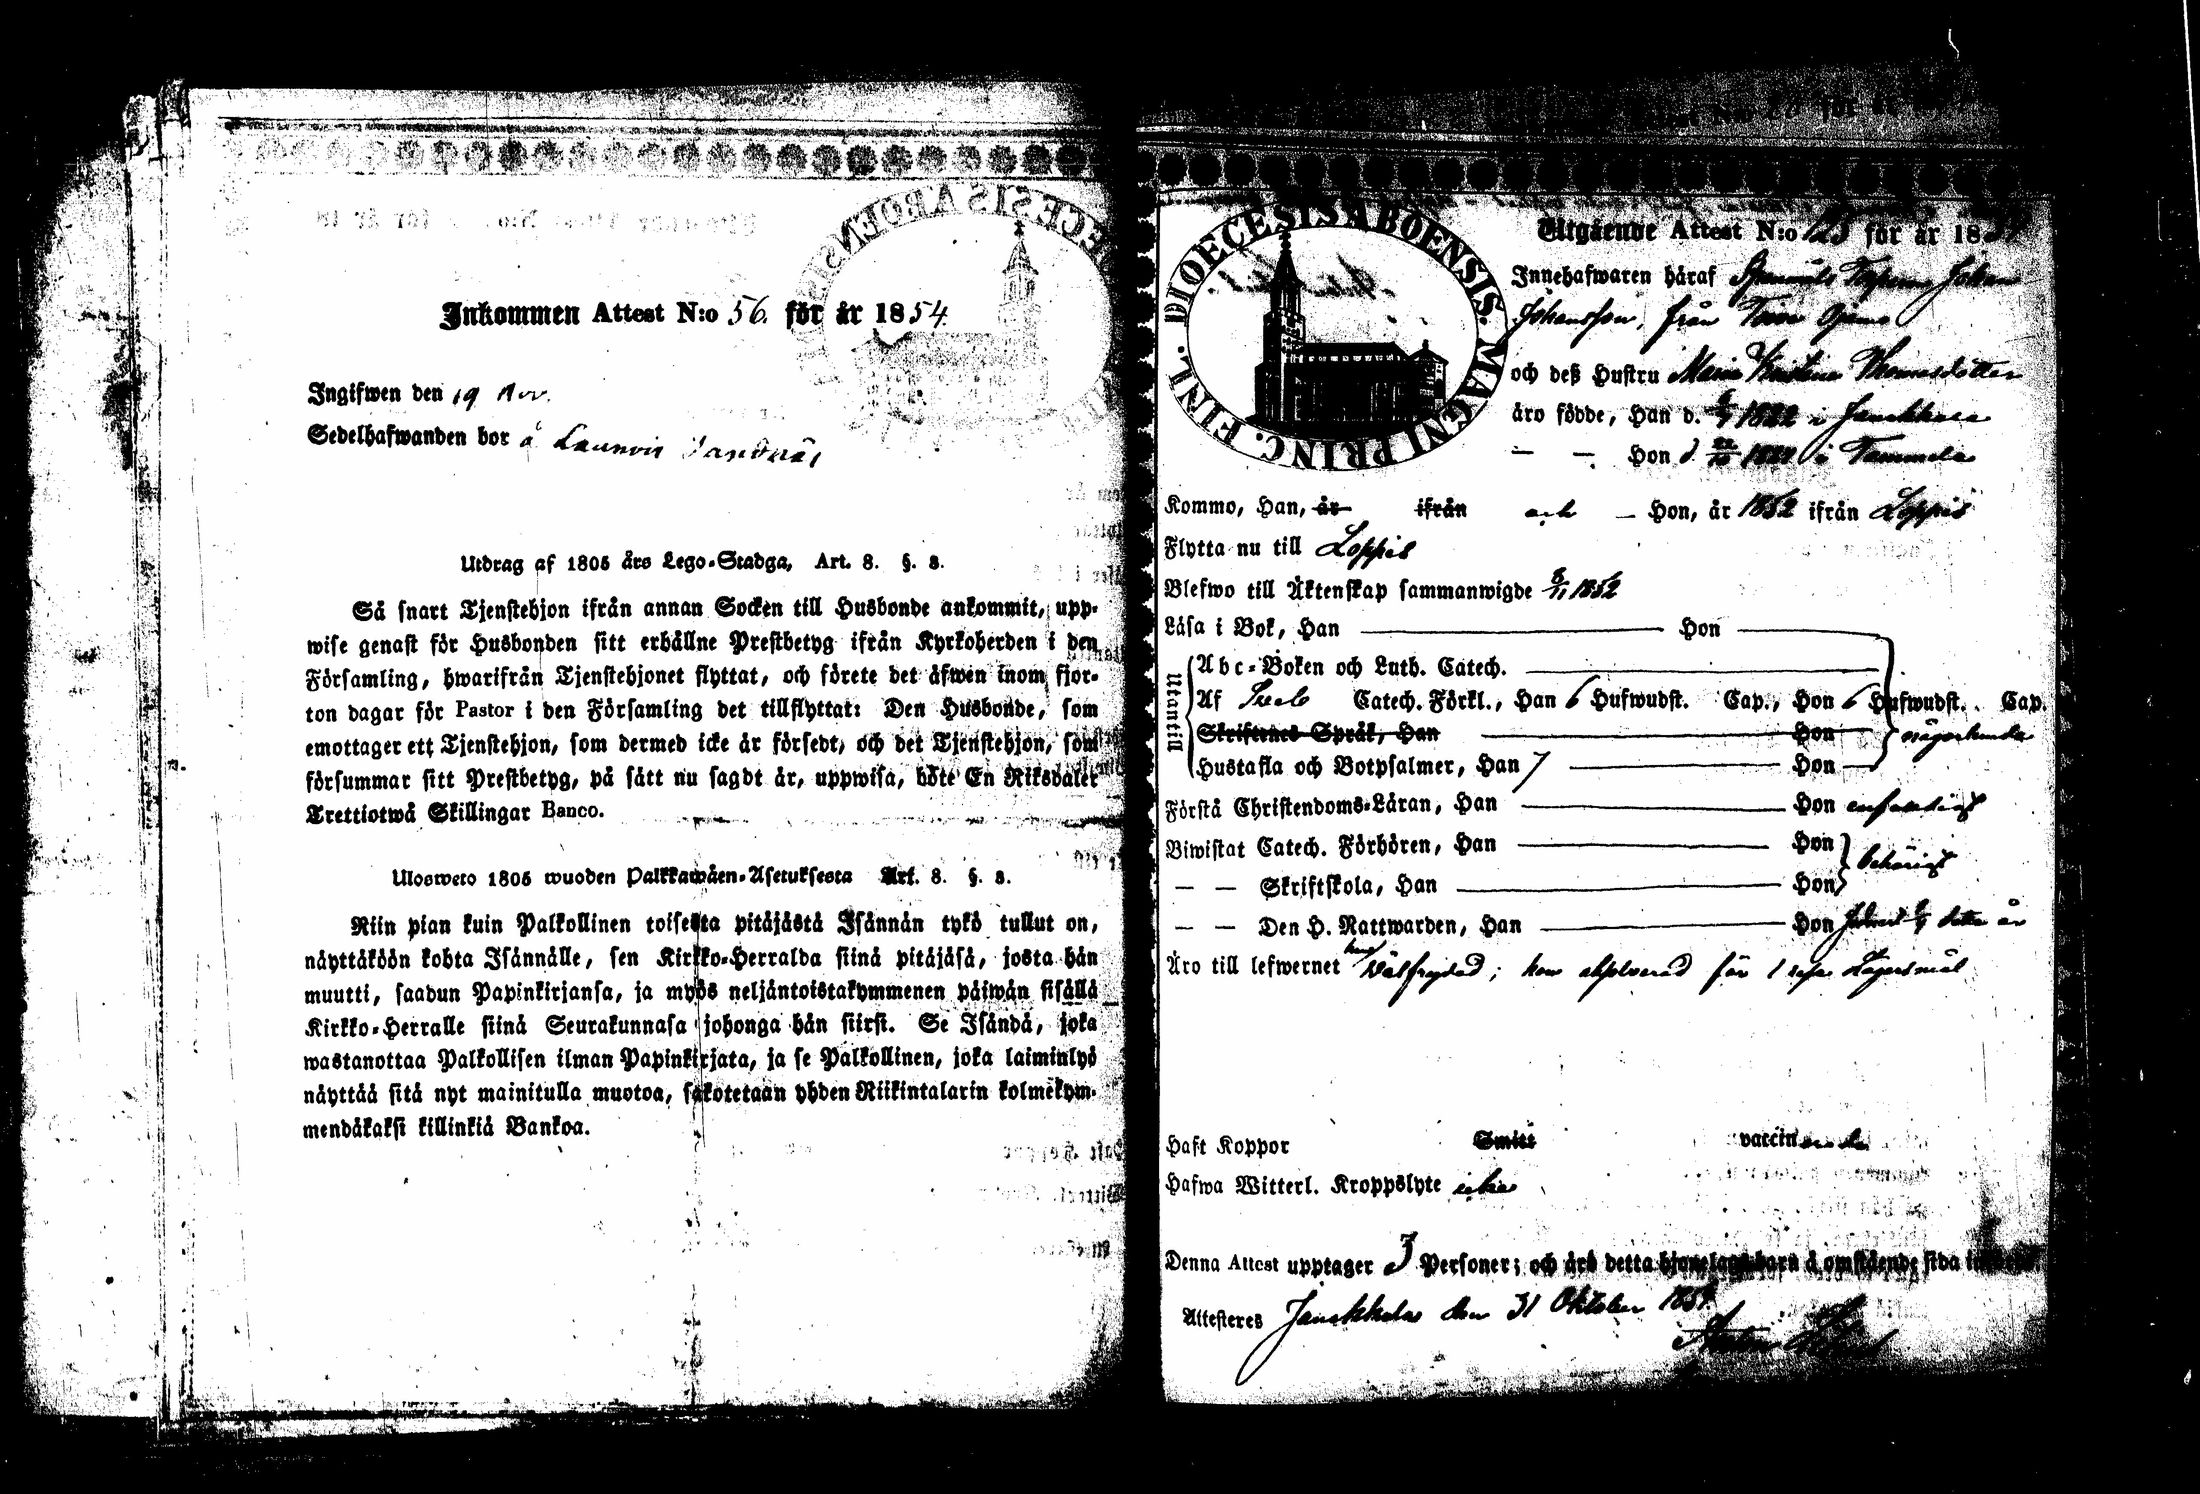 Inkommen Attest N:o 56. för år 1854.
Ingifwen den 19 Nov.
Sedelhafwanden bor å
Utdrag af 1805 års Lego-Stadga, Art. 8. §. 8.
Så snart Tjenstehjon ifrån annan Socken till Husbonde ankommit, upp-
wise genast för Husbonden sitt erhållne Prestbetyg ifrån Kyrkoherden i den
Församling, hwarifrån Tjenstehjonet flyttat, och förete det äfwen inom fjor-
ton dagar för Pastor i den Församling det tillflyttat: Den Husbonde, som
emottager ett Tjenstehjon, som dermed icke är försedt, och det Tjenstehjon, som
försummar sitt Prestbetyg, på sätt nu sagdt är, uppwisa, böte En Riksdaler
Trettiotwå Skillingar Banco.
Ulosweto 1805 wuoden Palkkawäen-Asetuksesta Art. 8. §. 8.
Niin pian kuin Palkollinen toisesta pitäjästä Isännän tykö tullut on,
näyttäköön kohta Isännälle, sen Kirkko-Herralda siinä pitäjäsä, josta hän
muutti, saadun Papinkirjansa, ja myös neljäntoistakymmenen päiwän sisällä
Kirkko-Herralle siinä Seurakunnasa johonga hän siirsi. Se Isändä, joka
wastanottaa Palkollisen ilman Papinkirjata, ja se Palkollinen, joka laiminlyö
näyttää sitä nyt mainitulla muotoa, sakotetaan yhden Riikintalarin kolmekym-
mendäkaksi killinkiä Bankoa.
DIOECESIS ABOENSIS. MAGNI PRINC. FINL.
Utgående Attest N:o 123 för år 1854
Innehafwaren häraf Johan
Johansson, från
och deß Hustru Maria Kristina Thomasdotter
äro födde, Han d. 1822 i Janakkala
— — Hon d. i Tammela
Kommo, Han, år ifrån och — Hon, år 1852 ifrån Loppis
Flytta nu till Loppis
Blefwo till Äktenskap sammanwigde 1852
Läsa i Bok, Han Hon
Utantill
Abc-Boken och Luth. Catech.
Af Catech. Förkl., Han 6 Hufwudst. Cap., Hon 6 Hufwudst. Cap.
Skriftenes Språk, Han Hon någorlunda
Hustafla och Botpsalmer, Han 7 Hon
Förstå Christendoms-Läran, Han Hon enfaldigt
Biwistat Catech. Förhören, Han Hon behörigt
— — Skriftskola, Han Hon
— — Den H. Nattwarden, Han Hon detta år
Äro till lefwernet han wälfrejdad; hon absolverad för 1 resa Lägersmål
Haft Koppor Smitt vaccinerade
Hafwa Witterl. Kroppslyte icke
Denna Attest upptager 3 Personer; och äro detta hjonelags barn å omstående sida
Attesteres Janakkala den 31 Oktober 1854.